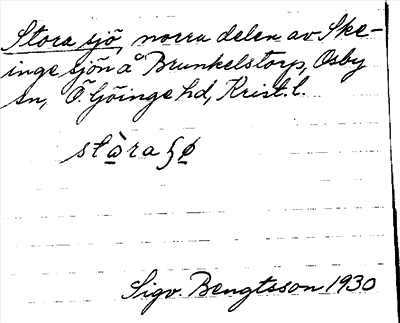 Stora sjö, norra delen av Ske-
inge sjön å Brunkelstorp, Osby
sn, Ö. Göinge hd, Krist. l.
stòra ʃø
Sigv. Bengtsson 1930